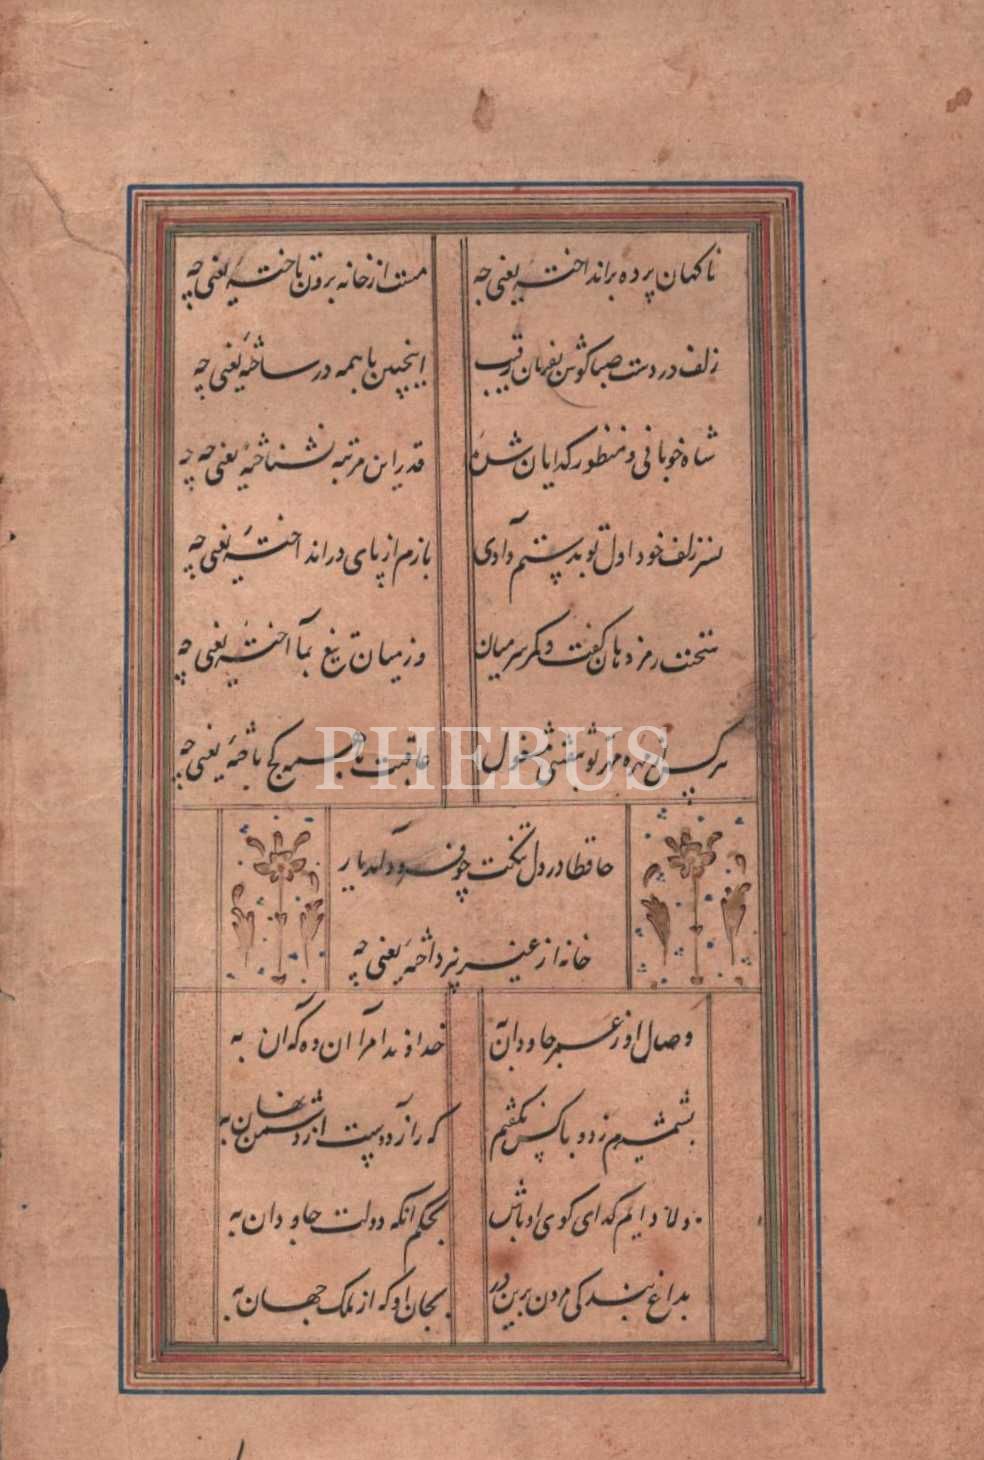 ناکهان پرده برانداخته یعنی چه
مست از خانه برون تاخته یعنی چه
زلف در دست صبا کوش بفرمان رقیب
اینچنین با همه در ساخته یعنی چه
شاه خوبانی و منظور کدایان شده
قدر این مرتبه نشناخته یعنی چه
نه سر زلف خود اول تو بدستم دادی
بازم از پای در انداخته یعنی چه
سخنت رمز دهان کفت و کمر سر میان
وز میان تیغ بما آخته یعنی چه
هر کس از مهره مهر تو بنقشی مشغول
عاقبت با همه کج باخته یعنی چه
حافظا در دل تنکت چو فرود آمد یار
خانه از غیر نپرداخته یعنی چه
وصال او ز عمر جاودان به
خداوندا مرا آن ده که آن به
بشمشیرم زد و با کس نکفتم
که راز دوست از دشمن نهان به
دلا دایم کدای کوی او باش
بحکم آنکه دولت جاودان به
بداغ بندکی مردن برین در
بجان او که از ملک جهان به
PHEBUS